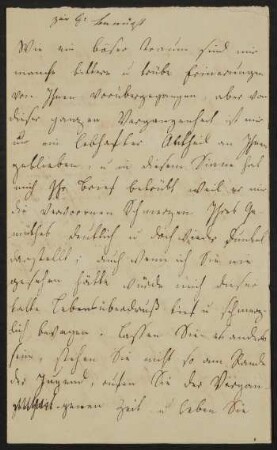 zu G. benutzt
Wie ein böser Traum sind mir
manche bittere u trübe Erinerungen
von Ihnen vorübergegangen, aber von
dieser ganzen Vergangenheit ist mir
nur ein lebhafter Antheil an Ihnen
geblieben, u in diesem Sinne hat
mich Ihr Brief betrübt weil er mir
die verworrnen Schmerzen Ihres Ge-
müthes deutlich u doch wieder dunkel
darstellt; auch wenn ich Sie nie
gesehen hätte würde mich dieser
kalte Lebensüberdruß tief u schmerz-
lich bewegen. Lassen Sie es anders
sein, stehen Sie nicht so am Rande
der Jugend, rufen Sie der Vergan-
genen Zeit u leben Sie